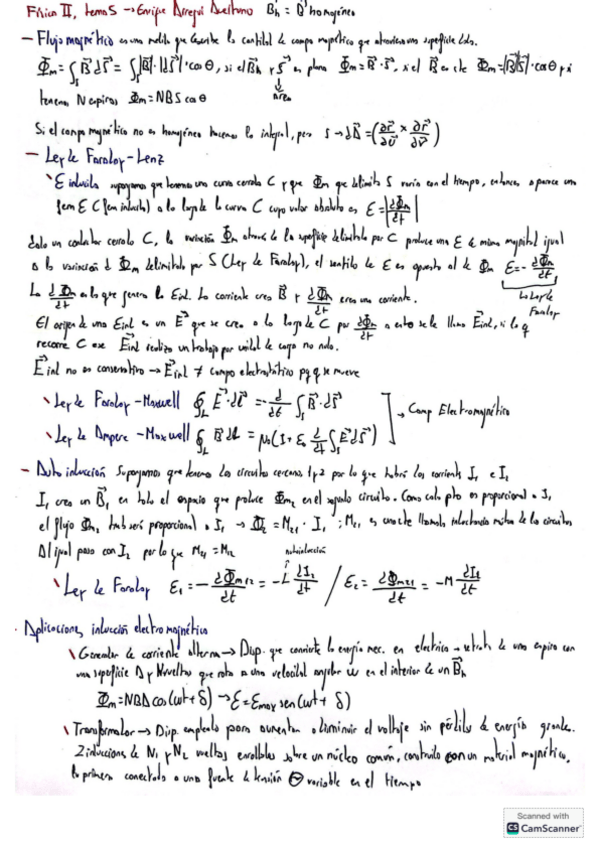 Física II, tema 5 → Enrique Arregui Aceituno B⃗h = B⃗ homogéneo
– Flujo magnético es una medida que describe la cantidad de campo magnético que atraviesa una superficie dada.
Φm = ∫s B⃗ dS⃗ = ∫s |B⃗|·|dS⃗|·cosθ, si el B⃗h y S⃗ es plana Φm = B⃗·S⃗, si el B⃗ es cte Φm = |B⃗||S⃗|·cosθ y si
Área
tenemos N espiras Φm = NBS cosθ
Si el campo magnético no es homogéneo hacemos la integral, pero S → dA⃗ = (∂r⃗/∂u × ∂r⃗/∂v)
– Ley de Faraday-Lenz
E inducida supongamos que tenemos una curva cerrada C y que Φm que delimita S varía con el tiempo, entonces aparece una
fem E C (fem inducida) a lo largo de la curva C cuyo valor absoluto es E = |dΦm/dt|
Dado un conductor cerrado C, la variación Φm através de la superficie delimitada por C produce una E de misma magnitud igual
a la variación d Φm delimitada por S (Ley de Faraday), el sentido de E es opuesto al de Φm E = - dΦm/dt
La Ley de Faraday
La dΦm/dt es lo que genera la Eind. La corriente crea B⃗ y dΦm/dt crea una corriente.
El origen de una Eind es un E⃗ que se crea a lo largo de C por dΦm/dt a esto se le llama E⃗ind, si la q
recorre C ese E⃗ind realiza un trabajo por unidad de carga no nulo.
E⃗ind no es conservativo → E⃗ind ≠ campo electrostático pq q se mueve
Ley de Faraday-Maxwell ∮L E⃗·dl⃗ = - d/dt ∫s B⃗·dS⃗
→ Camp Electromagnético
Ley de Ampere-Maxwell ∮L B⃗ dl = μ0(I + ε0 d/dt ∫s E⃗ dS⃗)
– Autoinducción Supongamos que tenemos dos circuitos cercanos 1 y 2 por lo que habrá dos corrientes I1 e I2
I1 crea un B⃗1 en todo el espacio que produce Φm2 en el segundo circuito. Como cada pto es proporcional a I1
el flujo Φm2 también será proporcional a I1 → Φ2 = M21 · I1 ; M21 es una cte llamada inductancia mútua de los circuitos
Al igual pasa con I2 por lo que M21 = M12
autoinducción
Ley de Faraday E1 = - dΦm12/dt = -L dI2/dt / E2 = dΦm21/dt = -M dI1/dt
· Aplicaciones inducción electromagnética
Generador de corriente alterna → Disp. que convierte la energía mec. en electrica → se trata de una espira con
una superficie A y N vueltas que rota a una velocidad angular w en el interior de un B⃗h
Φm = NBA cos(wt + δ) → E = Emax sen(wt + δ)
Transformador → Disp. empleado para aumentar o disminuir el voltaje sin pérdidas de energía grandes.
2 inducciones de N1 y N2 vueltas enrolladas sobre un núcleo común, construido con un material magnético,
la primera conectada a una fuente de tensión variable en el tiempo
Scanned with
CS CamScanner